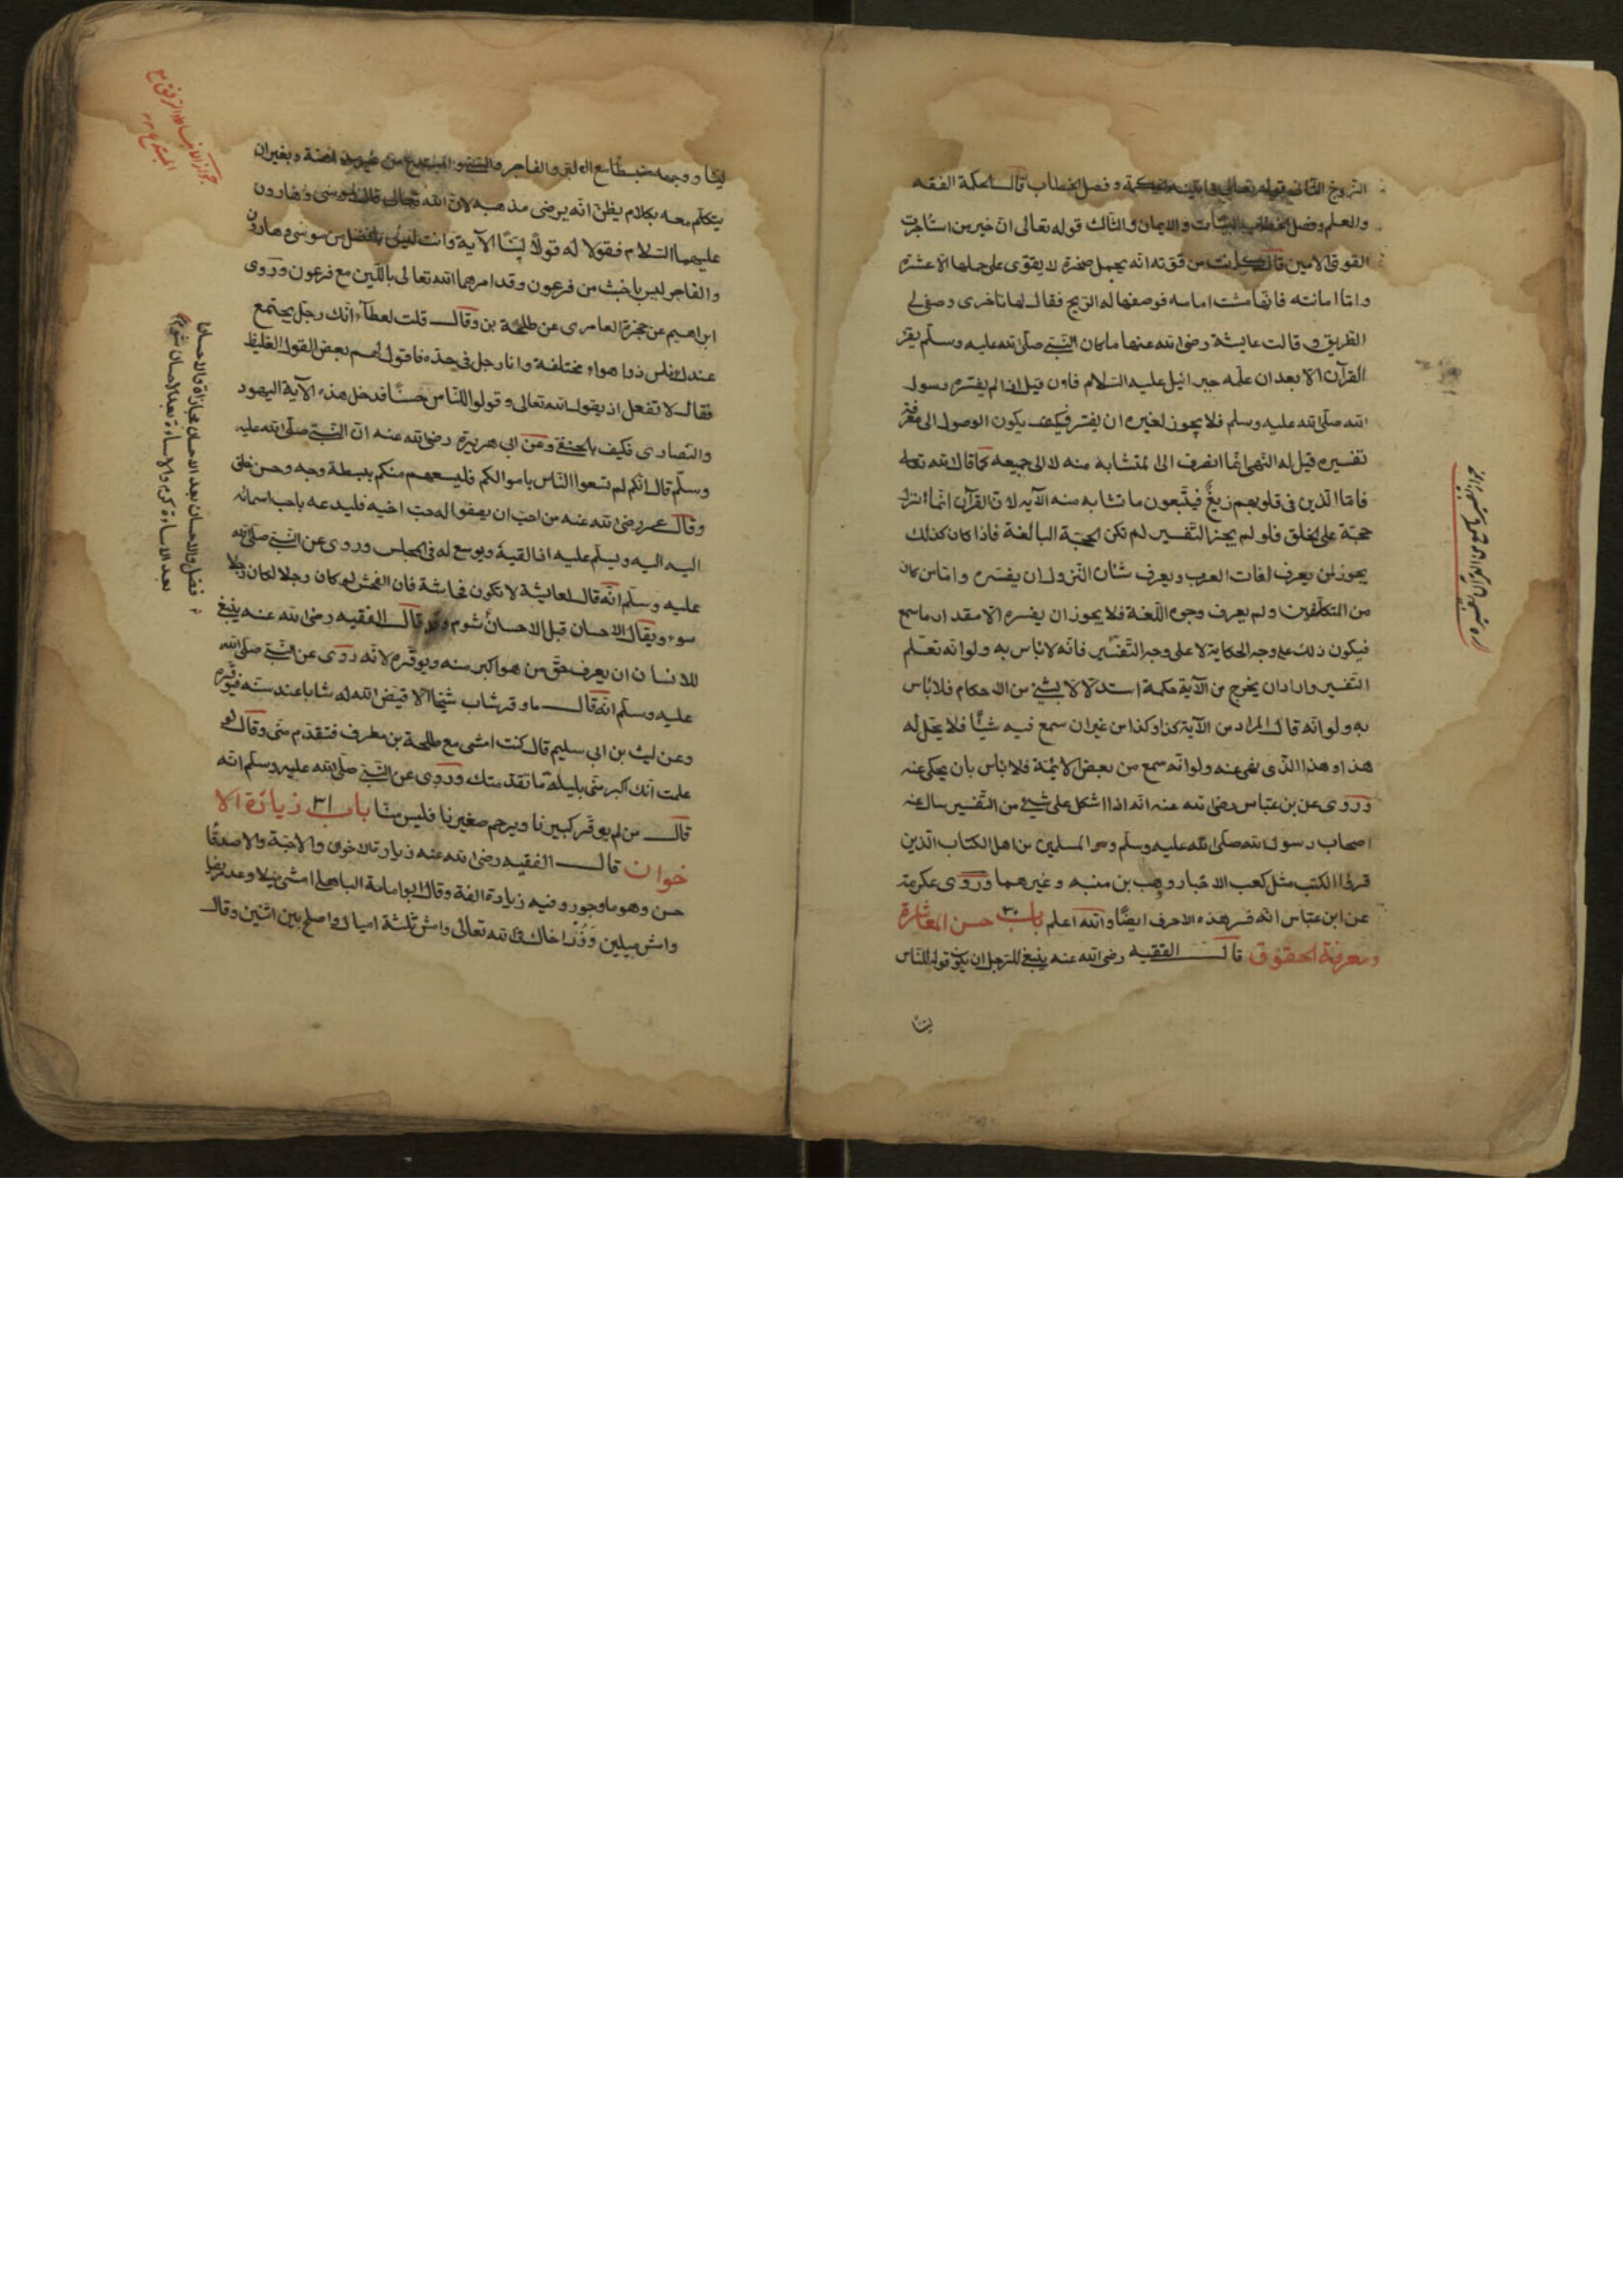 التزويج الثاني قوله تعالى وآتيناه الحكمة وفصل الخطاب قال الحكمة الفقه
والعلم وفصل الخطاب البينات والايمان والثالث قوله تعالى ان خير من استأجرت
القوى الامين قال كانت من قوته انه يحمل صخرة لا يقوى على حملها الا عشرة
واما امانته فانها مشت امامه فوصفها له الريح فقال لها تأخرى وصفى لى
الطريق وقالت عايشة رضى الله عنها ما كان النبى صلى الله عليه وسلم يفسر
القرآن الا بعد ان علمه جبرائيل عليه السلام فاون قيل اذا لم يفسره رسول
الله صلى الله عليه وسلم فلا يجوز لغيره ان يفسر فكيف يكون الوصول الى معرفة
تفسيره قيل له النهى انما انصرف الى المتشابه منه لا الى جميعه كما قال الله تعالى
فاما الذين فى قلوبهم زيغ فيتبعون ما تشابه منه الآيه لان القرآن انما نزل
حجة على الخلق فلو لم يجز التفسير لم تكن الحجة البالغة فاذا كان كذلك
يجوز لمن يعرف لغات العرب ويعرف شأن النزول ان يفسره واما من كان
من المتكلفين ولم يعرف وجوه اللغة فلا يجوز ان يفسره الا مقدار ما سمع
فيكون ذلك على وجه الحكاية لا على وجه التفسير فانه لا بأس به ولو انه تعلم
التفسير واراد ان يخرج من الآية حكمة استدلالا لشئ من الاحكام فلا بأس
به ولو انه قال المراد من الآية كذا وكذا من غير ان سمع فيه شيأ فلا يحل له
هذا وهذا الذى نهى عنه ولو انه سمع من بعض الائمة فلا بأس بان يحكى عنه
وروى عن بن عباس رضى الله عنه انه اذا اشكل على شئ من التفسير سال عنه
اصحاب رسول الله صلى الله عليه وسلم ومن المسلمين من اهل الكتاب الذين
قرؤا الكتب مثل كعب الاحبار ووهب بن منبه وغيرهما وروى عكرمة
عن ابن عباس انه فسر هذه الاحرف ايضا والله اعلم باب ٣٠ حسن المعاشرة
ومعرفة الحقوق قال الفقيه رضى الله عنه ينبغى للرجل ان يكون قوله للناس
لينا
لينا ووجهه منبسطا مع البر والفاجر والسنى والمبتدع من غير مداهنة وبغير ان
يتكلم معه بكلام يظن انه يرضى مذهبه لان الله تعالى قال لموسى وهارون
عليهما السلام فقولا له قولا لينا الآية وانت لست بافضل من موسى وهارون
والفاجر ليس باخبث من فرعون وقد امرهما الله تعالى باللين مع فرعون وروى
ابراهيم عن حمزة العامرى عن طلحة بن وقال قلت لعطآء انك رجل يجتمع
عندك ناس ذوا هواء مختلفة وانا رجل فى حدة فاقول لهم بعض القول الغليظ
فقال لا تفعل اذ يقول الله تعالى وقولوا للناس حسنا فدخل هذه الآية اليهود
والنصارى فكيف بالحنفى وعن ابى هريرة رضى الله عنه ان النبى صلى الله عليه
وسلم قال انكم لم تسعوا الناس باموالكم فليسعهم منكم بسطة وجه وحسن خلق
وقال عمر رضى الله عنه من احب ان يصفوا له حب اخيه فليدعه باحب اسمائه
اليه اليه ويسلم عليه اذا لقيه ويوسع له فى المجلس وروى عن النبى صلى الله
عليه وسلم انه قال لعايشة لا تكون فحاشة فان الفحش لو كان رجلا لكان رجلا
سوء ويقال الاحسان قبل الاحسان شوم قال الفقيه رضى الله عنه ينبغى
للانسان ان يعرف حق من هو اكبر منه ويوقره لانه روى عن النبى صلى الله
عليه وسلم انه قال ما وقر شاب شيخا الا قيض الله له شابا عند سنه فيوقره
وعن ليث بن ابى سليم قال كنت امشى مع طلحة بن مطرف فتقدم منى وقال لو
علمت انك اكبر منى بليلة ما تقدمتك وروى عن النبى صلى الله عليه وسلم انه
قال من لم يوقر كبيرنا ويرحم صغيرنا فليس منا باب ٣١ زيارة الا
خوان قال الفقيه رضى الله عنه زيارة الاخوان والاحبة والاصدقا
حسن وهو ماجور وفيه زيادة الفة وقال ابو امامة الباهلى امش ميلا وعد مريضا
وامش ميلين وزر اخاك فى الله تعالى وامش ثلثة اميال واصلح بين اثنين وقال
فضل والاحسان بعد الاحسان مجازاة والاحسان
بعد الاساءة كرم والاساءة بعد الاحسان شوم